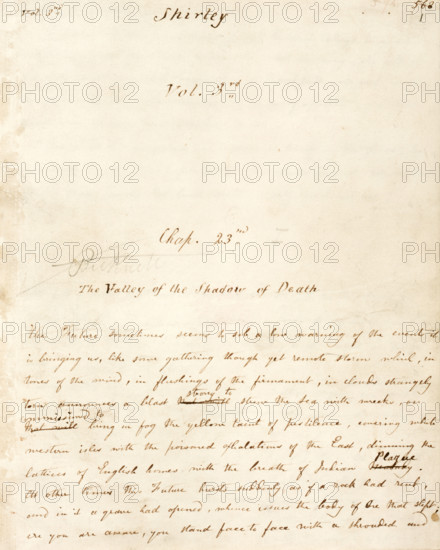 Vol. 3rd
Shirley
568
1
Vol. 3rd
Chap. 23rd
The Valley of the Shadow of Death
The Future sometimes seems to sob a low warning of the events it
is bringing us, like some gathering though yet remote storm which, in
tones of the wind, in flushings of the firmament, in clouds strangely
torn announces a blast strong to strew the sea with wrecks, or
commissioned to bring in fog the yellow taint of pestilence, covering white
western isles with the poisoned exhalations of the East, dimming the
lattices of English homes with the breath of Indian Plague.
At other times this Future bursts suddenly as if a rock had rent,
and in it a grave had opened, whence issues the body of one that slept.
ere you are aware, you stand face to face with a shrouded and
PHOTO 12